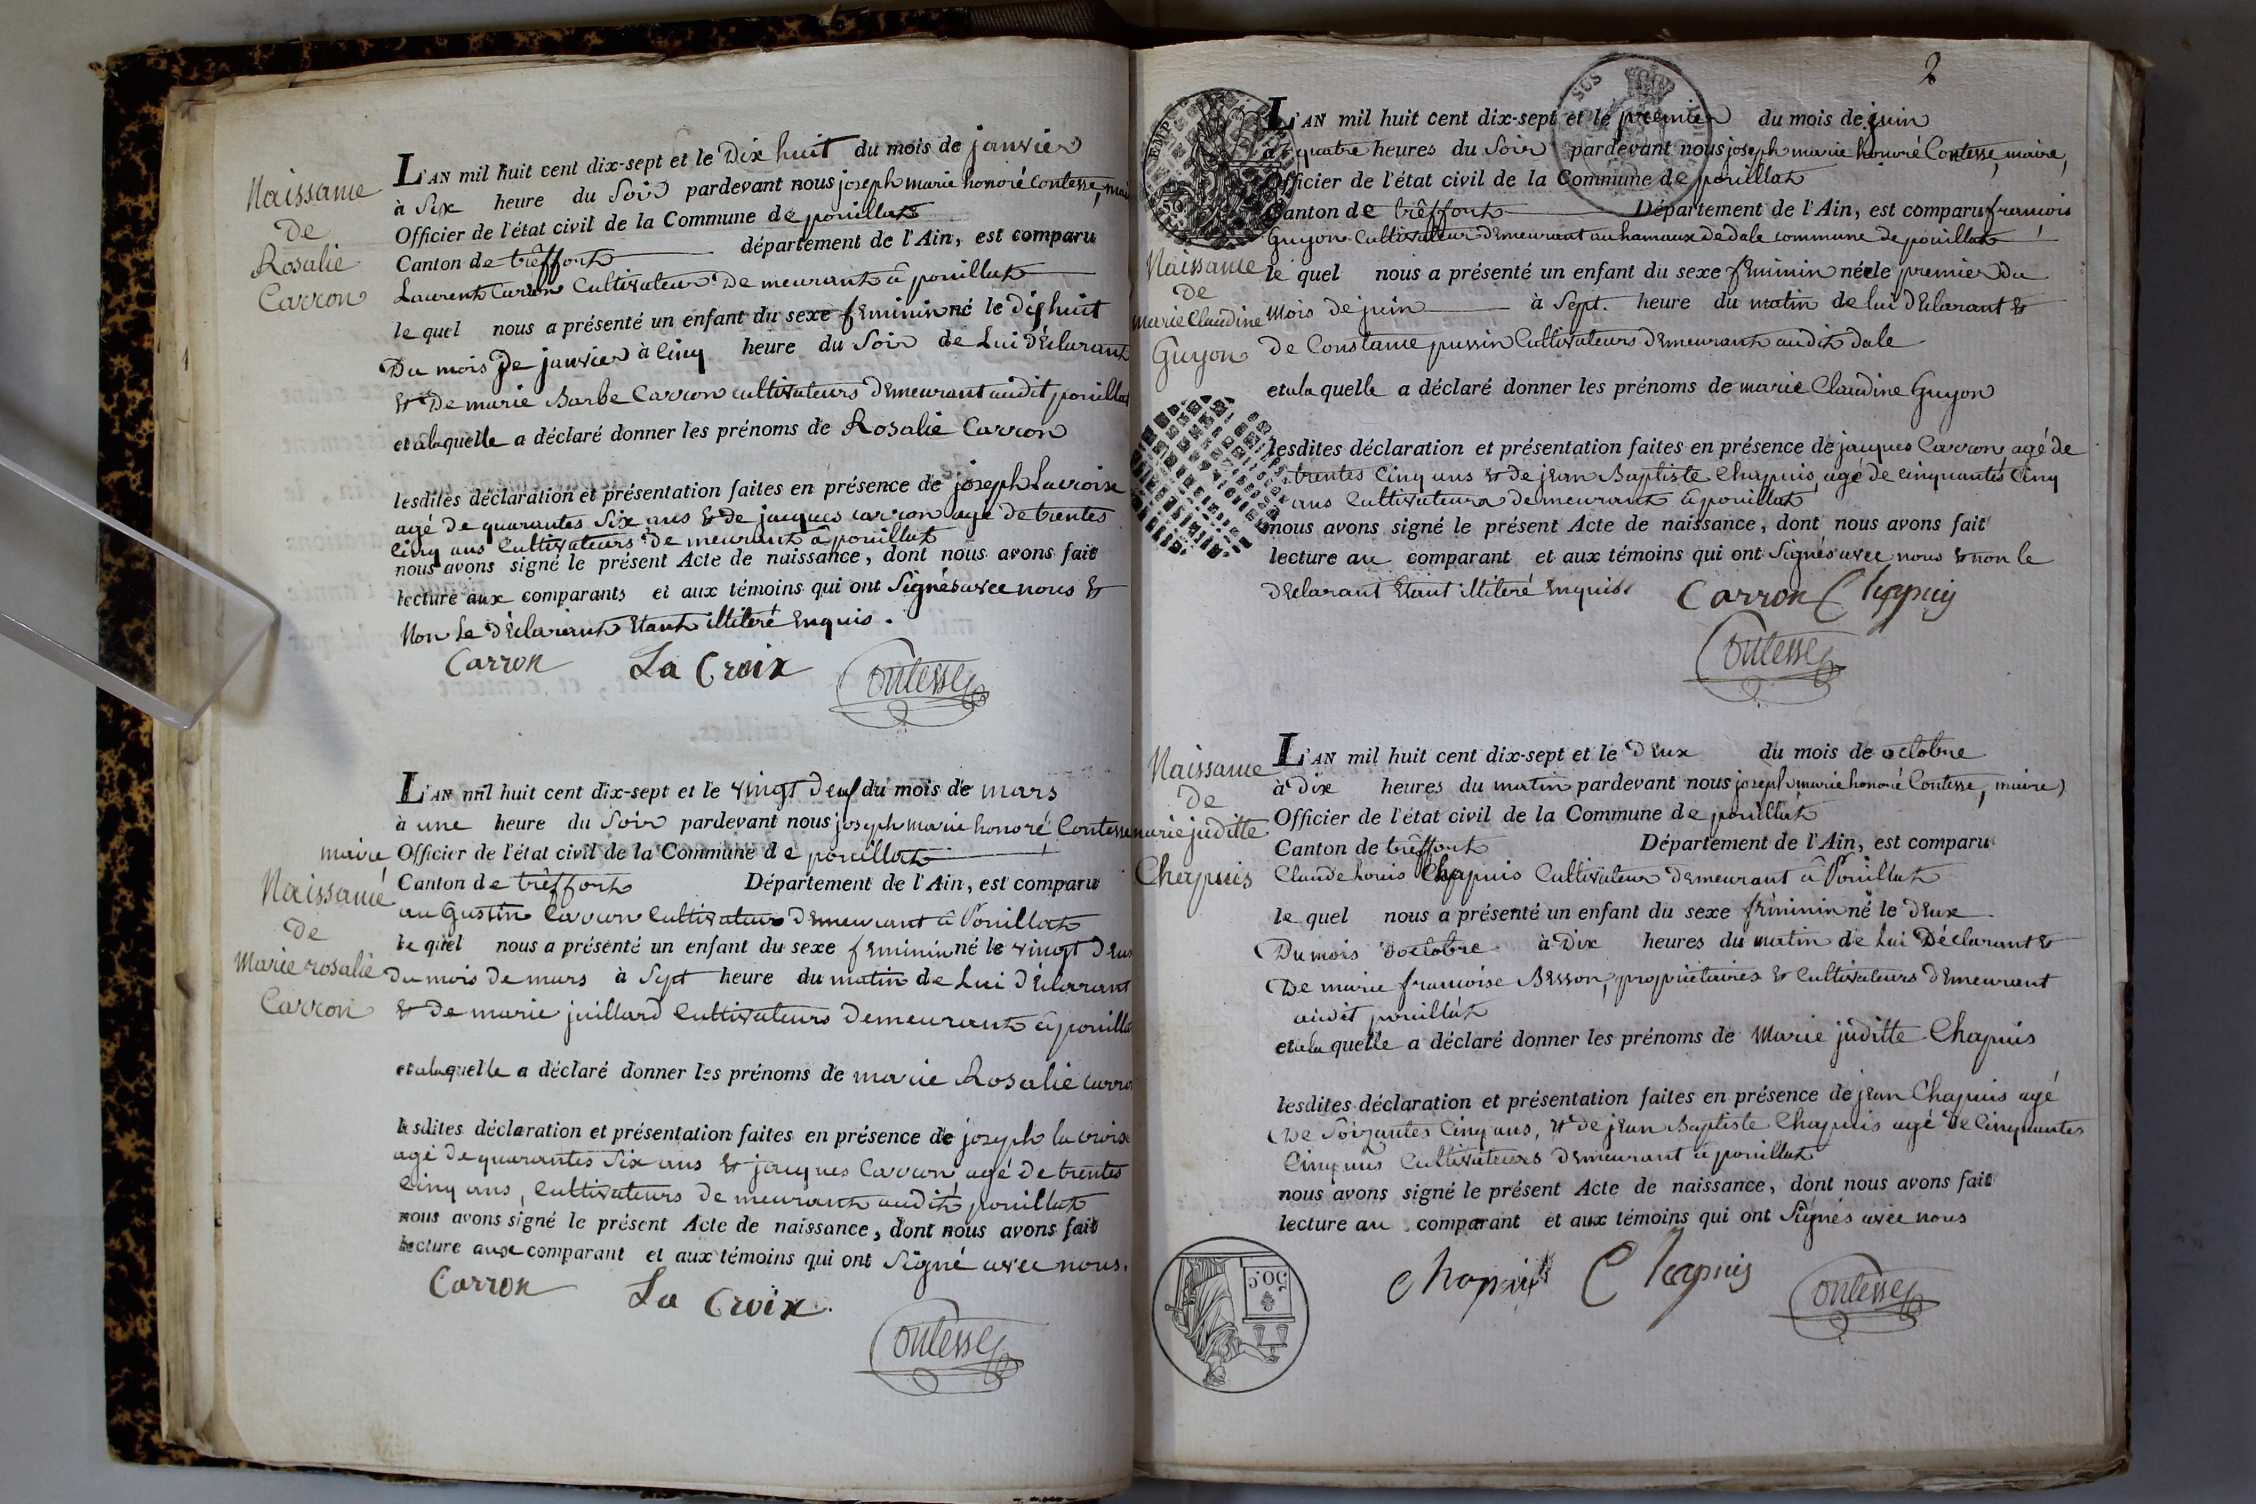 Naissance
de
Rosalie
Carron
L'AN mil huit cent dix-sept et le Dix huit du mois de janvier
à Six heure du Soir pardevant nous joseph marie honoré Contesse, mai
Officier de l'état civil de la Commune de pouillat
Canton de trêffort département de l'Ain, est comparu
Laurent Carron Cultivateur Demeurant à pouillat
le quel nous a présenté un enfant du sexe feminin né le dixhuit
Du mois De janvier à Cinq heure du Soir de Lui Déclarant
& De marie Barbe Carron cultivateurs Demeurant audit pouillat
et a laquelle a déclaré donner les prénoms de Rosalie Carron
lesdites déclaration et présentation faites en présence de joseph Lacroix
agé de quarantes Six ans & de jacques carron agé de trentes
Cinq ans Cultivateurs demeurant à pouillat
nous avons signé le présent Acte de naissance, dont nous avons fait
lecture aux comparants et aux témoins qui ont Signés avec nous &
Non Le Déclarant Etant illiteré Enquis.
Carron La Croix Contesse
L'AN mil huit cent dix-sept et le vingt deux du mois de mars
à une heure du Soir pardevant nous joseph marie honoré Contesse
maire Officier de l'état civil de la Commune de pouillat
Naissance
de
Marie rosalie
Carron
Canton de trêffort Département de l'Ain, est comparu
au Gustin Carron Cultivateur Demeurant à Pouillat
le quel nous a présenté un enfant du sexe feminin né le vingt Deux
du mois de mars à Sept heure du matin de Lui Déclarant
& De marie juillard Cultivateurs Demeurant à pouillat
et a laquelle a déclaré donner les prénoms de marie Rosalie carron
lesdites déclaration et présentation faites en présence de joseph la croix
agé De quarantes Six ans & jacques Carron, agé de trentes
Cinq ans, Cultivateurs demeurant audit pouillat
nous avons signé le présent Acte de naissance, dont nous avons fait
lecture aux comparant et aux témoins qui ont Signé avec nous.
Carron La Croix.
Contesse
2
L'AN mil huit cent dix-sept et le premier du mois de juin
à quatre heures du Soir pardevant nous joseph marie honoré Contesse, maire,
Officier de l'état civil de la Commune de pouillat
Canton de trêffort Département de l'Ain, est comparu françois
Guyon Cultivateur Demeurant au hamaux de dale commune de pouillat
Naissance
de
marie Claudine
Guyon
le quel nous a présenté un enfant du sexe feminin née le premier Du
Mois de juin à Sept. heure du matin de lui Déclarant &
de Constance pussin Cultivateurs Demeurant audit dale
et a la quelle a déclaré donner les prénoms de marie Claudine Guyon
lesdites déclaration et présentation faites en présence de jacques Carron, agé de
trentes Cinq ans & de jean Baptiste Chapuis, agé de Cinquantes Cinq
ans Cultivateurs demeurant à pouillat
nous avons signé le présent Acte de naissance, dont nous avons fait
lecture au comparant et aux témoins qui ont Signés avec nous & non le
Déclarant Etant illiteré Enquis.
Carron Chapuis
Contesse
Naissance
de
marie juditte
Chapuis
L'AN mil huit cent dix-sept et le Deux du mois de octobre
à Dix heures du matin pardevant nous joseph marie honoré Contesse, maire,
Officier de l'état civil de la Commune de pouillat
Canton de trêffort Département de l'Ain, est comparu
Claude Louis Chapuis Cultivateur Demeurant à Pouillat
le quel nous a présenté un enfant du sexe feminin né le Deux
Du mois D'octobre à Dix heures du matin de Lui Déclarant &
De marie françoise Besson, propriétaires & Cultivateurs Demeurant
audit pouillat
et a la quelle a déclaré donner les prénoms de Marie juditte Chapuis
lesdites déclaration et présentation faites en présence de jean Chapuis agé
De Soixantes Cinq ans, & de jean Baptiste Chapuis agé de Cinquantes
Cinq ans Cultivateurs Demeurant à pouillat
nous avons signé le présent Acte de naissance, dont nous avons fait
lecture au comparant et aux témoins qui ont Signés avec nous
Chapuis Chapuis Contesse
50.C